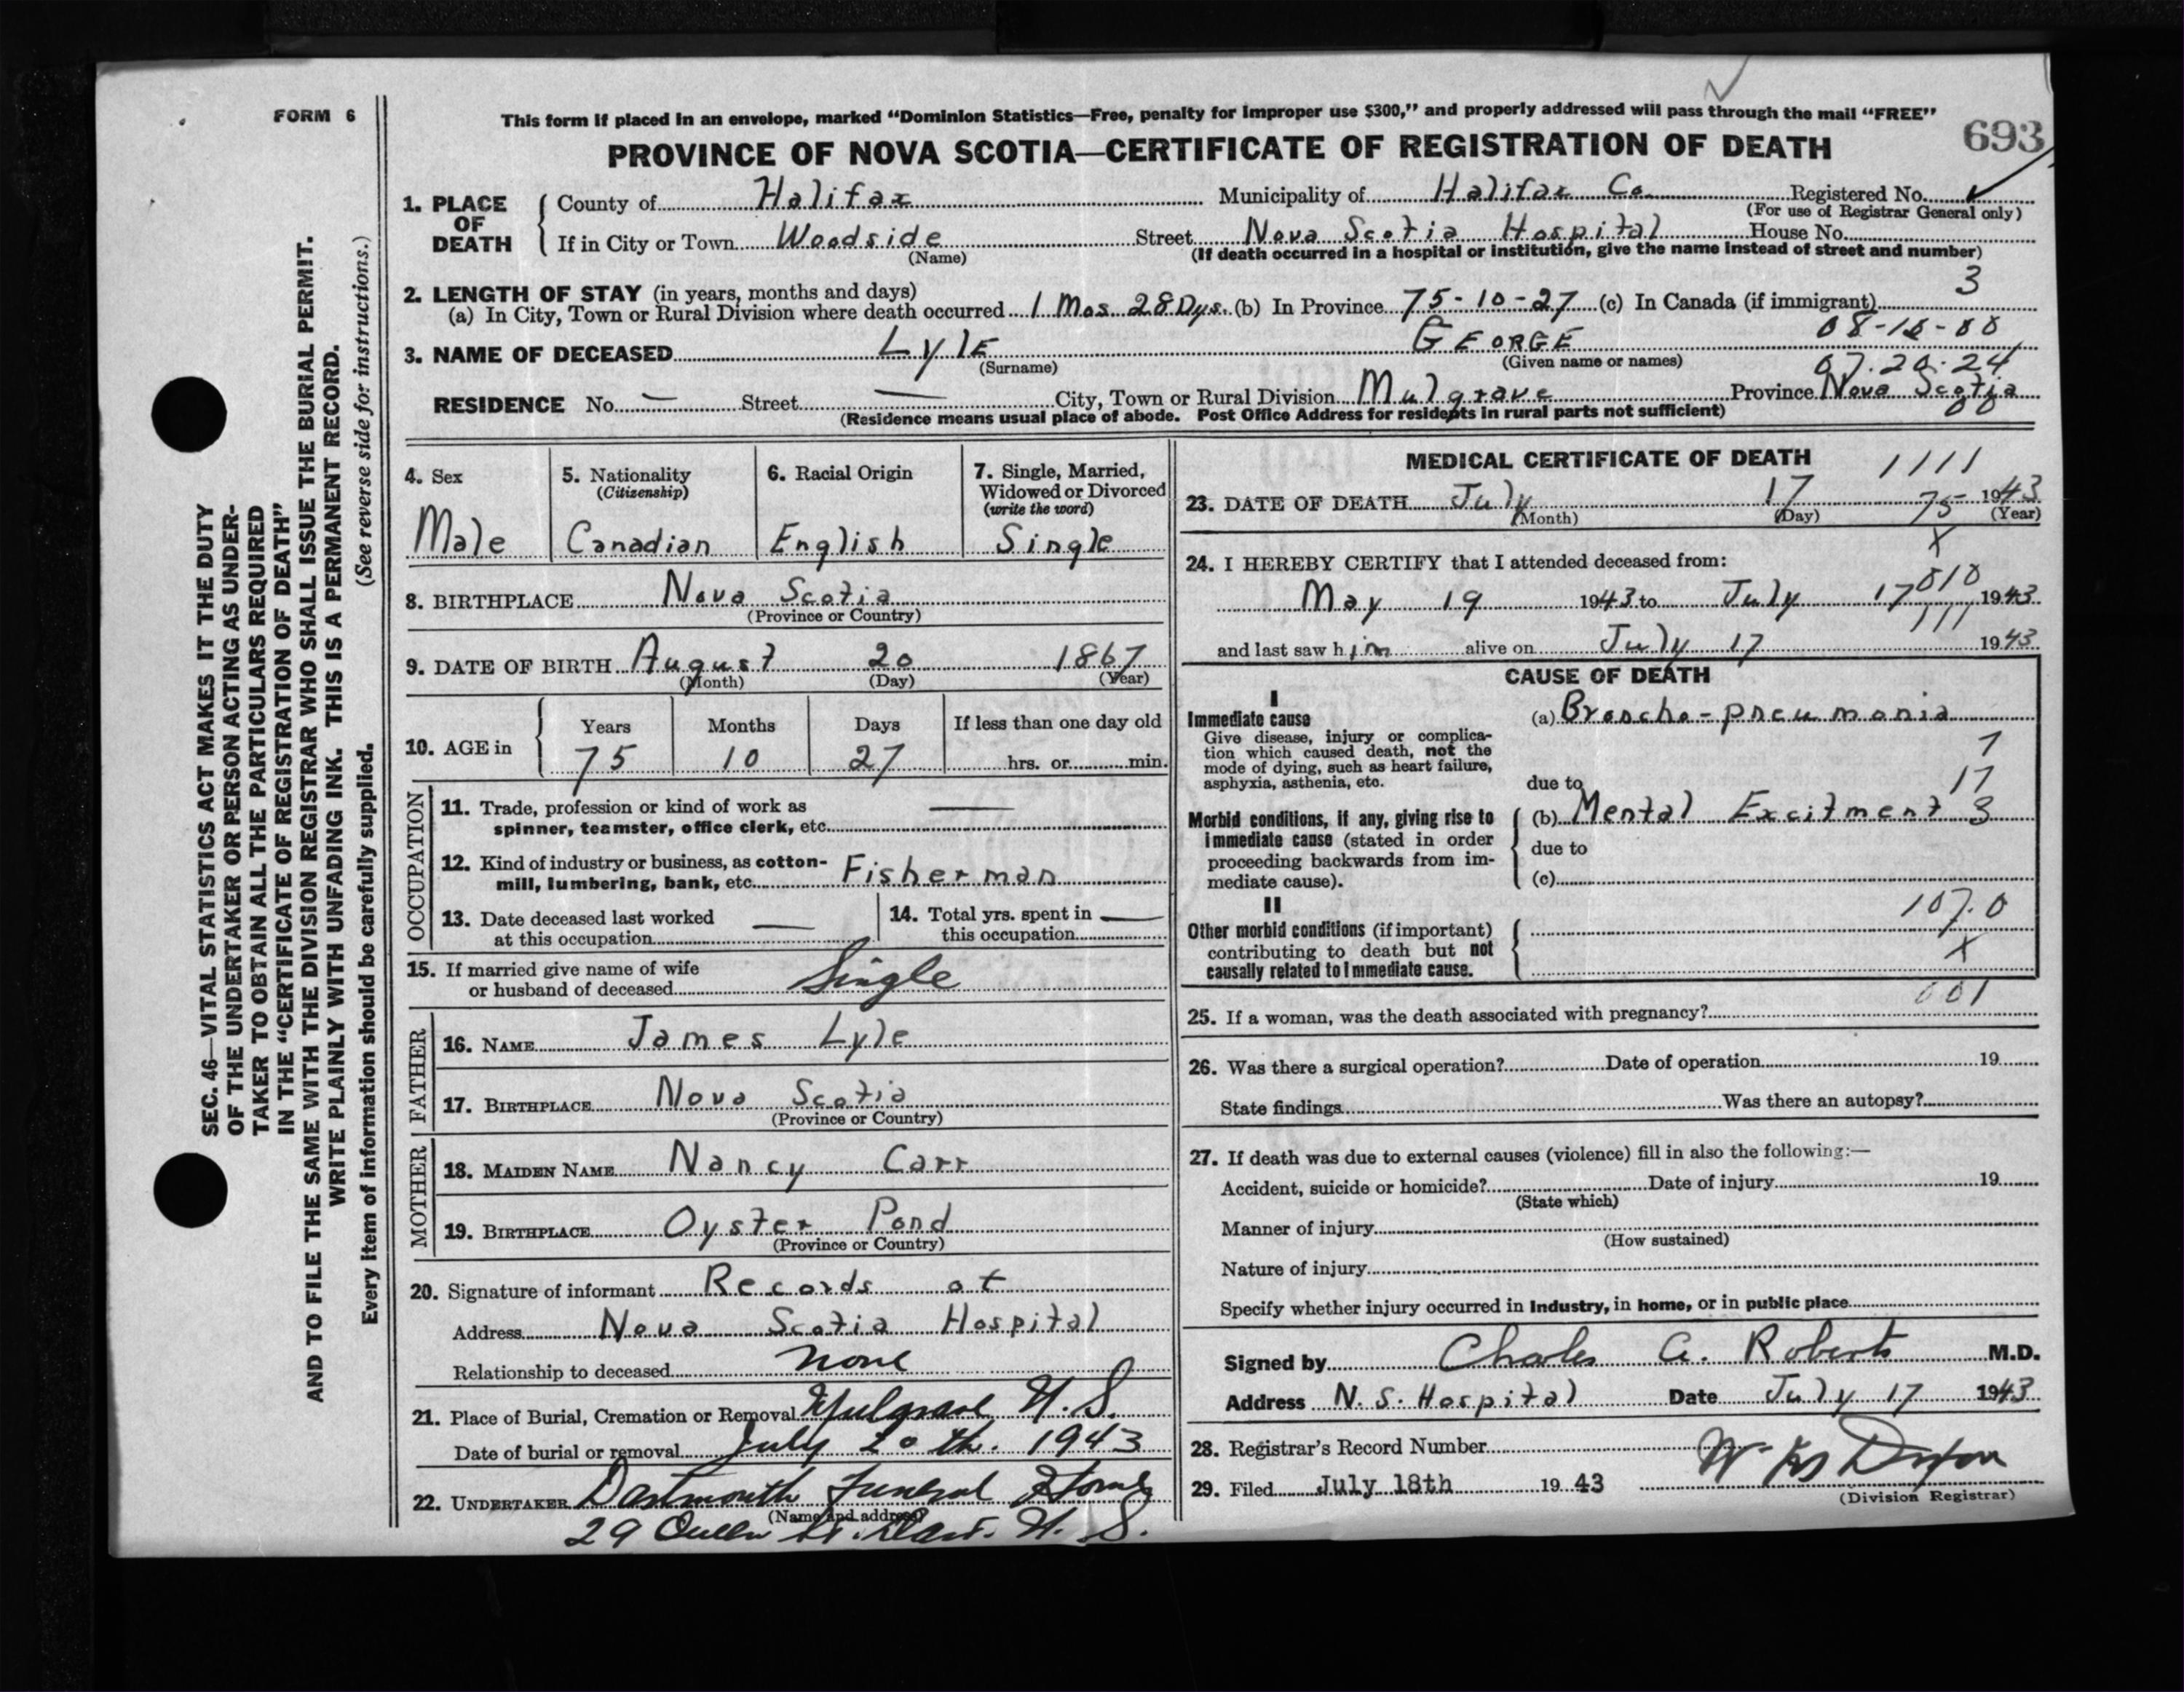 FORM 6
This form if placed in an envelope, marked "Dominion Statistics—Free, penalty for improper use $300," and properly addressed will pass through the mail "FREE"
PROVINCE OF NOVA SCOTIA—CERTIFICATE OF REGISTRATION OF DEATH
693
SEC. 46—VITAL STATISTICS ACT MAKES IT THE DUTY
OF THE UNDERTAKER OR PERSON ACTING AS UNDER-
TAKER TO OBTAIN ALL THE PARTICULARS REQUIRED
IN THE "CERTIFICATE OF REGISTRATION OF DEATH"
AND TO FILE THE SAME WITH THE DIVISION REGISTRAR WHO SHALL ISSUE THE BURIAL PERMIT.
WRITE PLAINLY WITH UNFADING INK. THIS IS A PERMANENT RECORD.
Every item of information should be carefully supplied. (See reverse side for instructions.)
1. PLACE OF DEATH
County of Halifax Municipality of Halifax Co. Registered No.
(For use of Registrar General only)
If in City or Town Woodside Street Nova Scotia Hospital House No.
(Name) (If death occurred in a hospital or institution, give the name instead of street and number)
3
2. LENGTH OF STAY (in years, months and days)
(a) In City, Town or Rural Division where death occurred 1 Mos 28 Dys. (b) In Province 75-10-27 (c) In Canada (if immigrant)
3. NAME OF DECEASED LylE GEORGE
(Surname) (Given name or names)
07.20.24
RESIDENCE No. — Street — City, Town or Rural Division Mulgrave Province Nova Scotia
(Residence means usual place of abode. Post Office Address for residents in rural parts not sufficient)
00
4. Sex
Male
5. Nationality
(Citizenship)
Canadian
6. Racial Origin
English
7. Single, Married,
Widowed or Divorced
(write the word)
Single
8. BIRTHPLACE Nova Scotia
(Province or Country)
9. DATE OF BIRTH August 20 1867
(Month) (Day) (Year)
10. AGE in
Years Months Days If less than one day old
75 10 27 hrs. or min.
OCCUPATION
11. Trade, profession or kind of work as
spinner, teamster, office clerk, etc. —
12. Kind of industry or business, as cotton-
mill, lumbering, bank, etc. Fisherman
13. Date deceased last worked
at this occupation —
14. Total yrs. spent in
this occupation —
15. If married give name of wife
or husband of deceased Single
FATHER
16. NAME James Lyle
17. BIRTHPLACE Nova Scotia
(Province or Country)
MOTHER
18. MAIDEN NAME Nancy Carr
19. BIRTHPLACE Oyster Pond
(Province or Country)
20. Signature of informant Records at
Address Nova Scotia Hospital
Relationship to deceased none
21. Place of Burial, Cremation or Removal Mulgrave N.S.
Date of burial or removal July 20th. 1943
22. UNDERTAKER Dartmouth Funeral Home
(Name and address)
29 Queen St. Dart. N.S.
MEDICAL CERTIFICATE OF DEATH
1111
23. DATE OF DEATH July 17 75 1943
(Month) (Day) (Year)
X
24. I HEREBY CERTIFY that I attended deceased from:
010
May 19 1943 to July 17 1943
111
and last saw him alive on July 17 1943
CAUSE OF DEATH
I
Immediate cause
Give disease, injury or complica-
tion which caused death, not the
mode of dying, such as heart failure,
asphyxia, asthenia, etc.
(a) Broncho-pneumonia
7
due to 17
Morbid conditions, if any, giving rise to
immediate cause (stated in order
proceeding backwards from im-
mediate cause).
(b) Mental Excitment 3
due to
(c)
II
107.0
Other morbid conditions (if important)
contributing to death but not
causally related to immediate cause.
X
001
25. If a woman, was the death associated with pregnancy?
26. Was there a surgical operation? Date of operation 19
State findings Was there an autopsy?
27. If death was due to external causes (violence) fill in also the following:—
Accident, suicide or homicide? Date of injury 19
(State which)
Manner of injury
(How sustained)
Nature of injury
Specify whether injury occurred in Industry, in home, or in public place
Signed by Charles A. Roberts M.D.
Address N. S. Hospital Date July 17 1943
28. Registrar's Record Number
29. Filed July 18th 1943 Dixon
(Division Registrar)